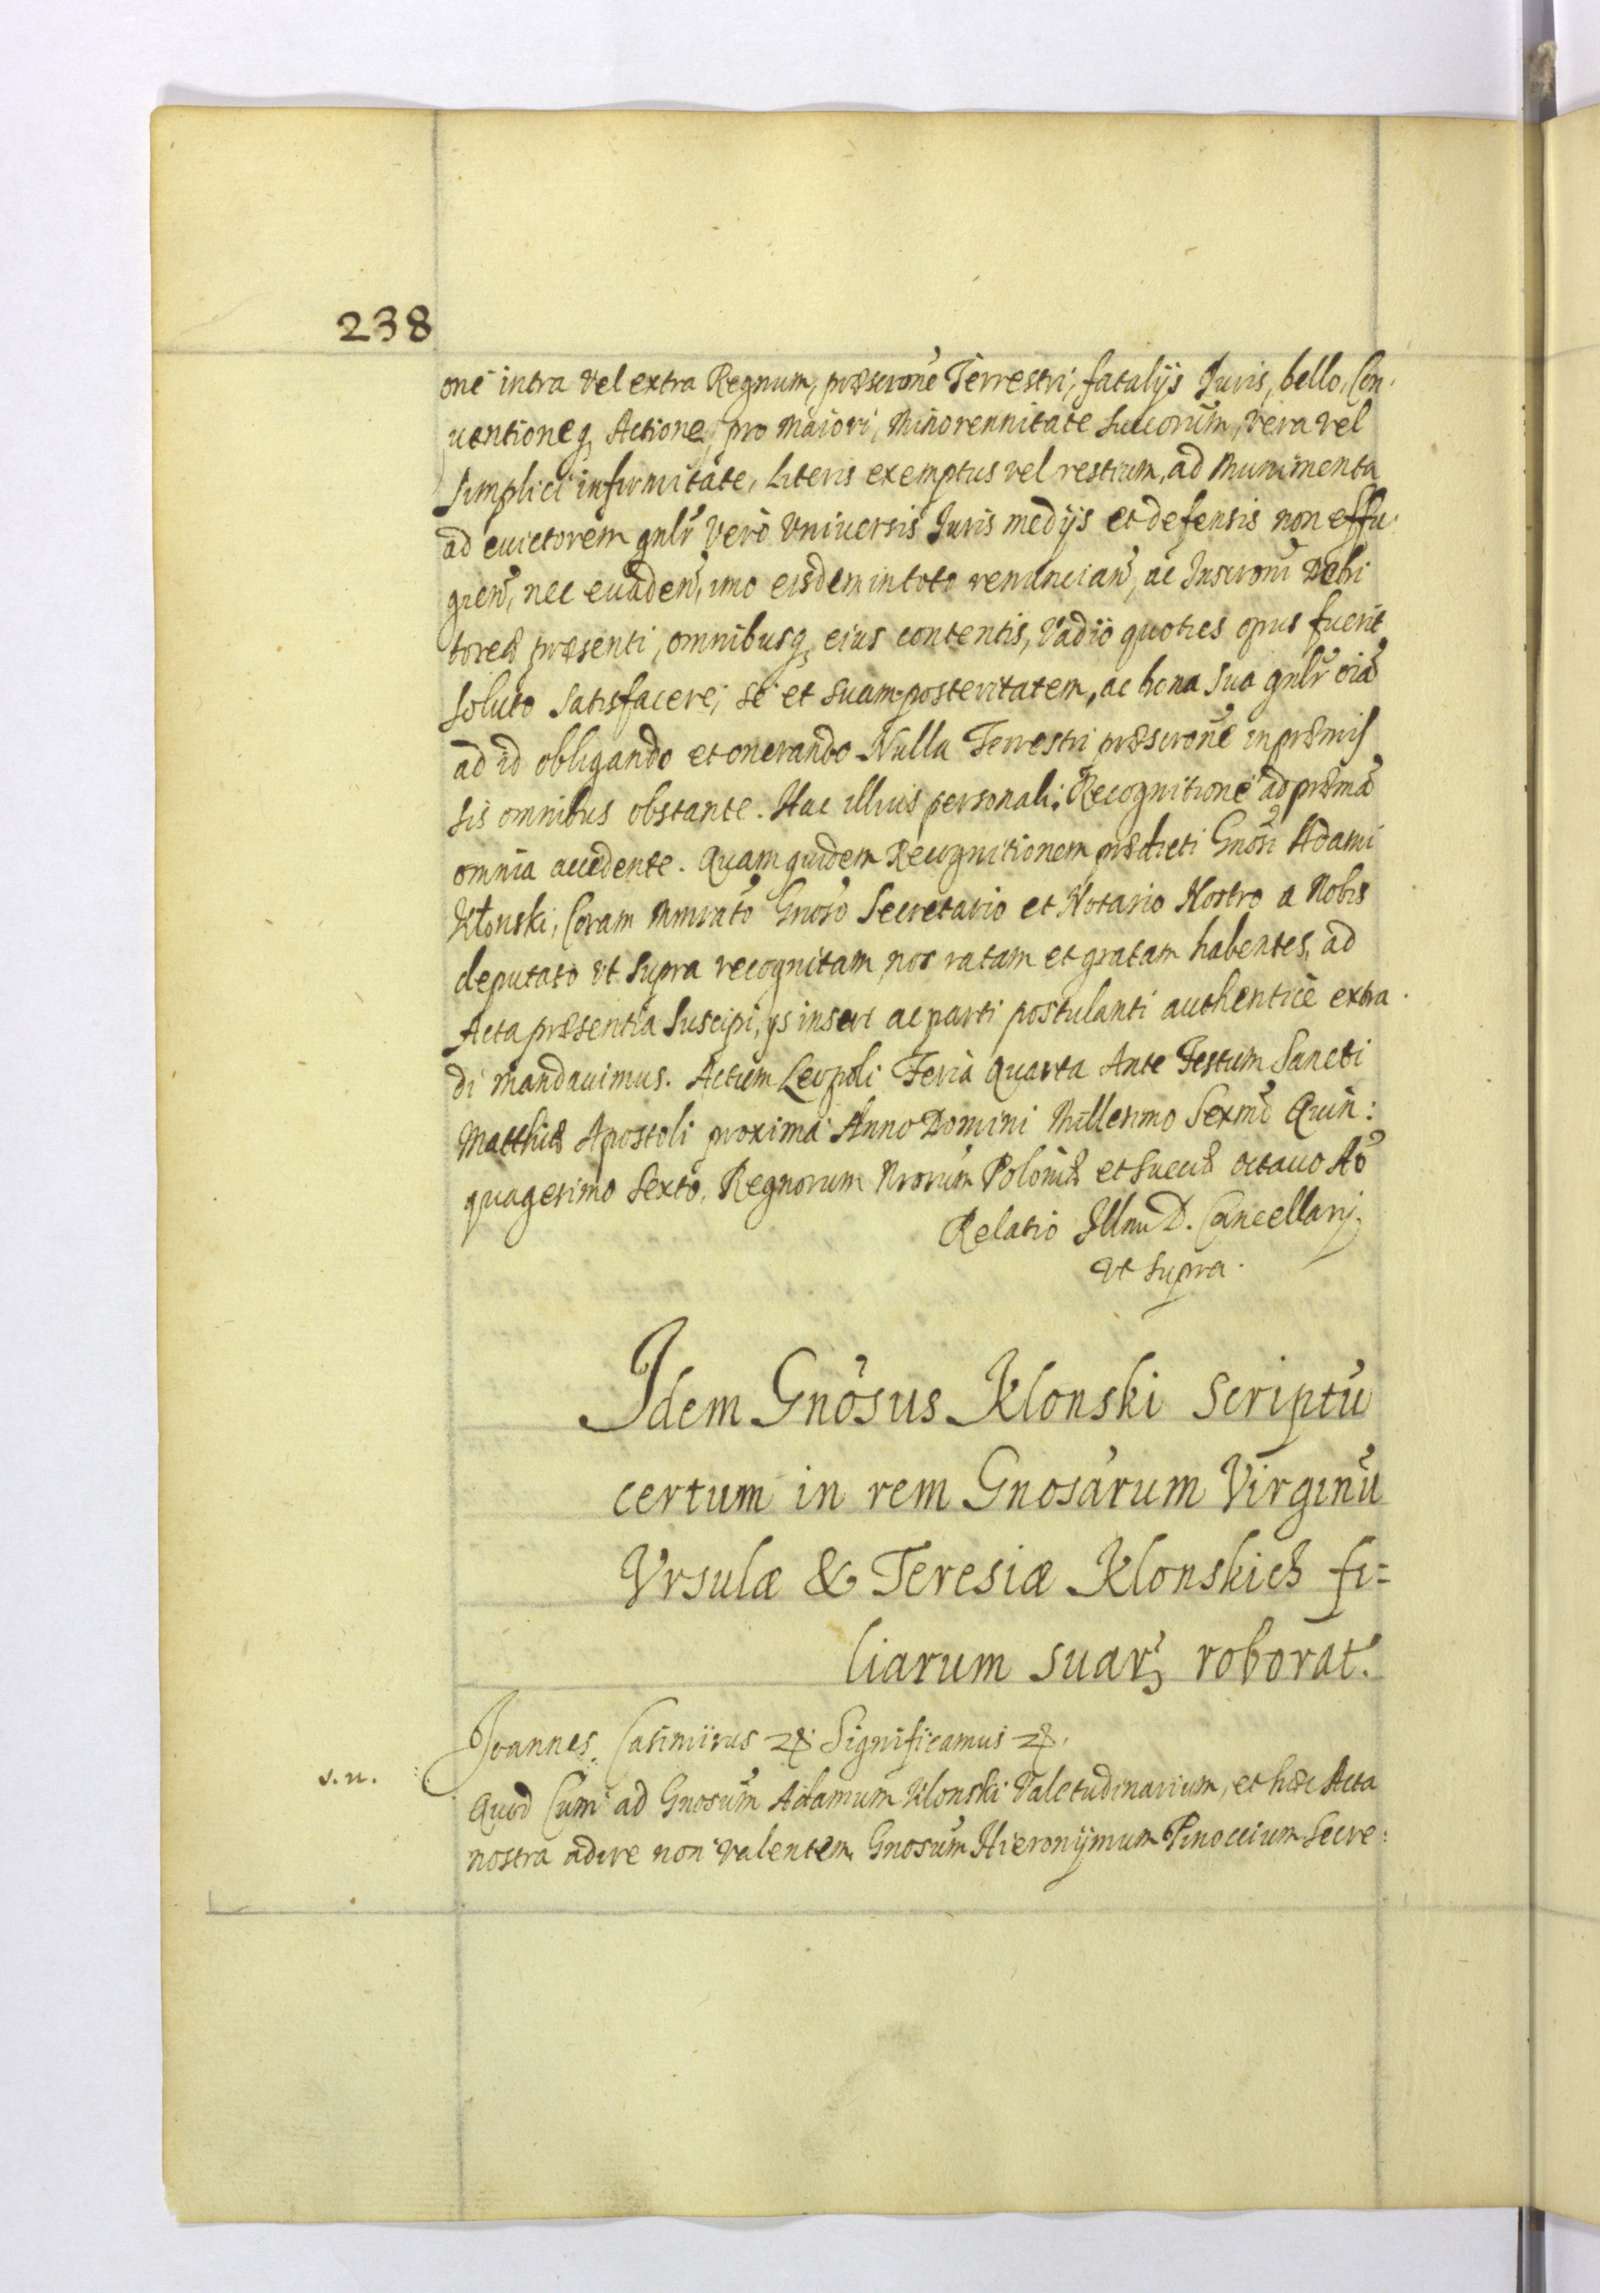 238
one intra vel extra Regnum, præscrone Terrestri, fatalijs Juris, bello, Con-
uentioneq, Actione, pro maiori, Minorennitate succorum, vera vel
simplici infirmitate, literis exemptus vel restium, ad Munimenta
ad euictorem gnlr vero Vniversis Juris medijs et defensis non effu-
gien, nec evaden, imo eisdem in toto renuncian, ac Inscroni Debi
toreæ præsenti, omnibusq, eius contentis, Vadio quoties opus fuerit
soluto satisfacere, se et suam posteritatem, ac bona sua gnlr oia
ad id obligando et onerando Nulla Terrestri præscrone in præmis
sis omnibus obstante. Hac illius personali Recognitione ad præma
omnia accedente. Quam quidem Recognitionem prædicti Gnosi Adami
Kłonski, Coram Mmrato Gnoso Secretario et Notario Nostro a Nobis
deputato vt supra recognitam, nos ratam et gratam habentes, ad
Acta præsentia suscipi, ijs inseri ac parti postulanti authentice extra
di mandauimus. Actum Leopoli Feria Quarta Ante Festum Sancti
Matthiæ Apostoli proxima Anno Domini Millesimo Sexmo Quin:
quagesimo Sexto, Regnorum Nrorum Poloniæ et Sueciæ octauo Ao
Relatio Illmi D. Cancellarij
vt supra.
Idem Gnosus Klonski Scriptu
certum in rem Gnosarum Virginu
Vrsulæ & Teresiæ Klonskich fi=
liarum suarꝫ roborat.
Joannes Casimirus &. Significamus &.
s. n.
Quod Cum ad Gnosum Adamum Klonski Valetudinarium, et hæc Acta
nostra adire non valentem, Gnosum Hieronijmum Pinoccium Secre: